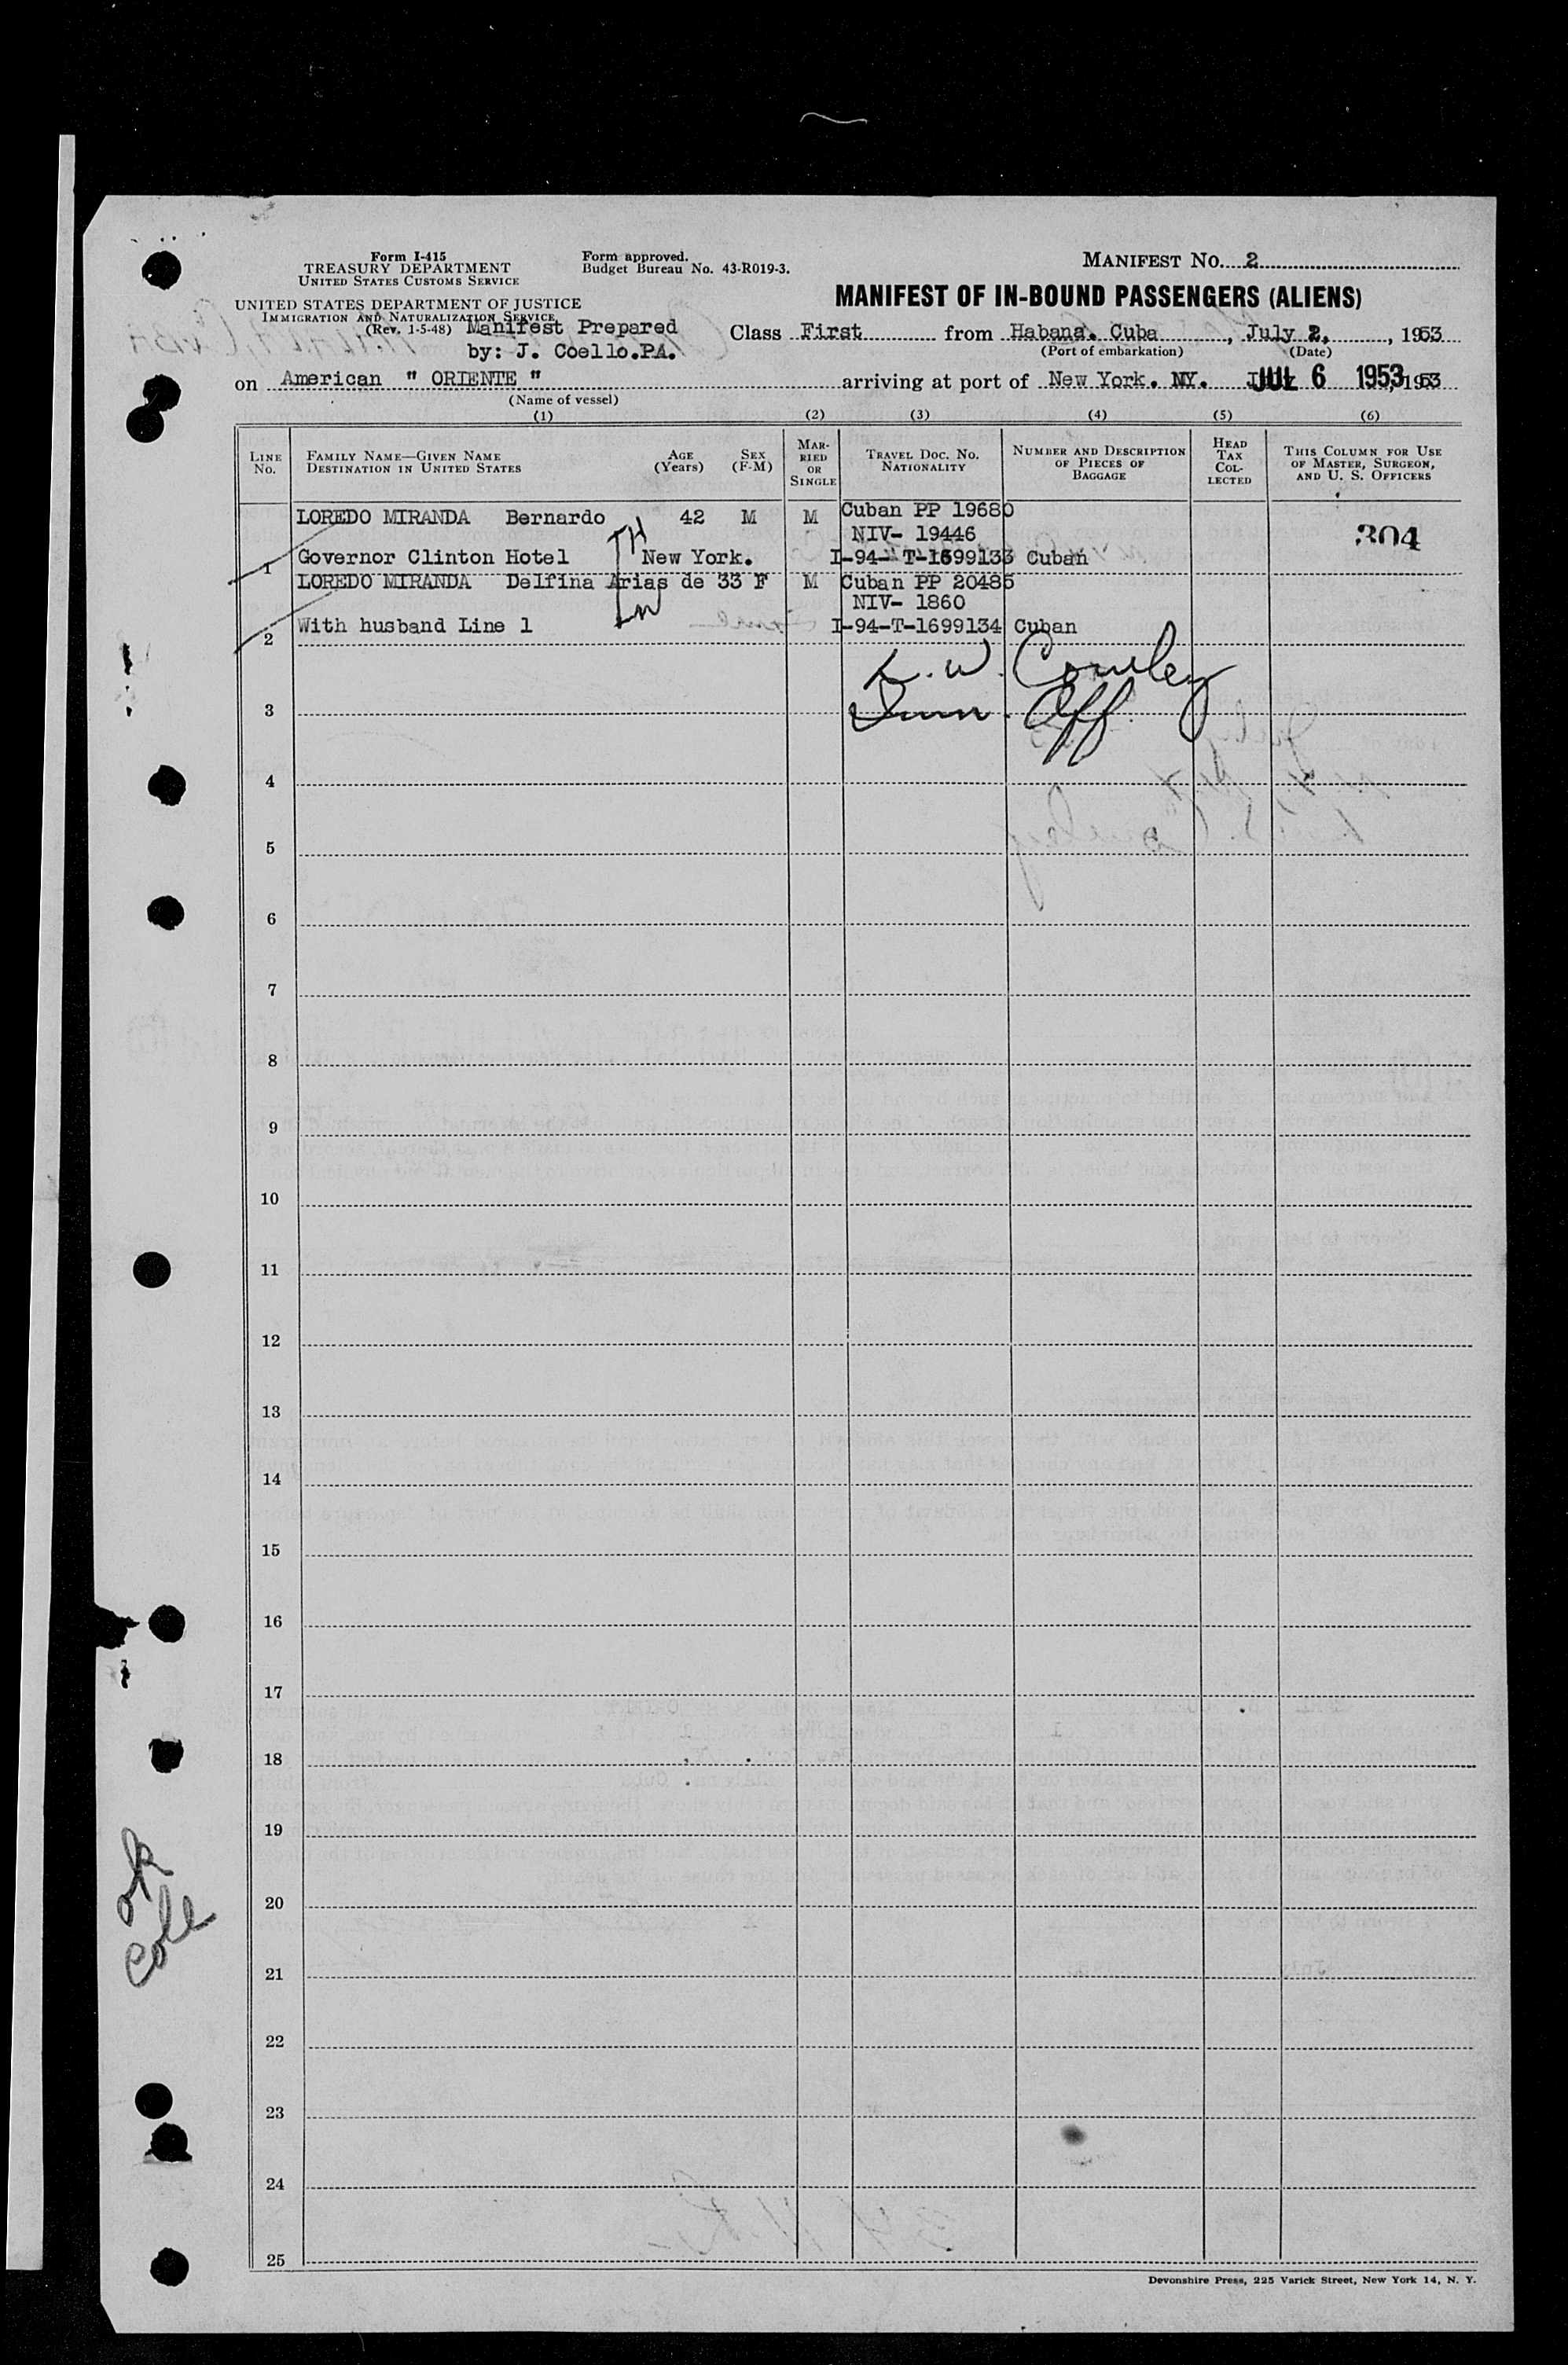 Form I-415
TREASURY DEPARTMENT
UNITED STATES CUSTOMS SERVICE
Form approved.
Budget Bureau No. 43-R019-3.
MANIFEST NO. 2
UNITED STATES DEPARTMENT OF JUSTICE
IMMIGRATION AND NATURALIZATION SERVICE
(Rev. 1-5-48) Manifest Prepared
by: J. Coello.PA.
MANIFEST OF IN-BOUND PASSENGERS (ALIENS)
Class First from Habana. Cuba, July 2, 1953
(Port of embarkation) (Date)
on American " ORIENTE " arriving at port of New York. NY. JUL 6 1953, 1953
(Name of vessel)
(1) (2) (3) (4) (5) (6)
LINE No. FAMILY NAME—GIVEN NAME DESTINATION IN UNITED STATES AGE (Years) SEX (F-M) MARRIED OR SINGLE TRAVEL DOC. NO. NATIONALITY NUMBER AND DESCRIPTION OF PIECES OF BAGGAGE HEAD TAX COLLECTED THIS COLUMN FOR USE OF MASTER, SURGEON, AND U. S. OFFICERS
LOREDO MIRANDA Bernardo 42 M M Cuban PP 19680
NIV- 19446 304
1 Governor Clinton Hotel New York. I-94- T-1699133 Cuban
LOREDO MIRANDA Delfina Arias de 33 F M Cuban PP 20485
NIV- 1860
2 With husband Line 1 I-94-T-1699134 Cuban
Cowley
3 Imm. Off.
4
5
6
7
8
9
10
11
12
13
14
15
16
17
18
19
ok
20
Coll
21
22
23
24
25
Devonshire Press, 225 Varick Street, New York 14, N. Y.